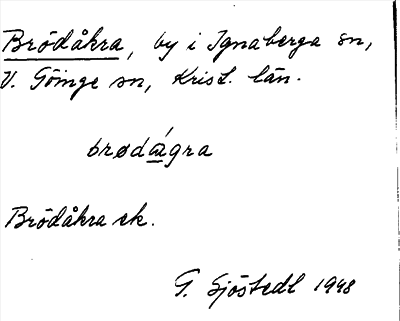 Brödåkra, by i Ignaberga sn,
V. Göinge sn, Krist. län.
brødágra
Brödåkra ek.
G. Sjöstedt 1948